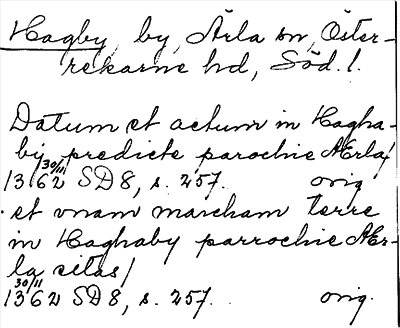 Hagby, by, Ärla sn, Öster-
rekarne hd, Söd. l.
Datum et actum in Hagha-
by predicte parochie Ærla/
1362 30/11 SD 8, s. 257. orig
et vnam marcham terre
in Haghaby parrochie Ær-
la sitas/
1362 30/11 SD 8, s. 257. orig.